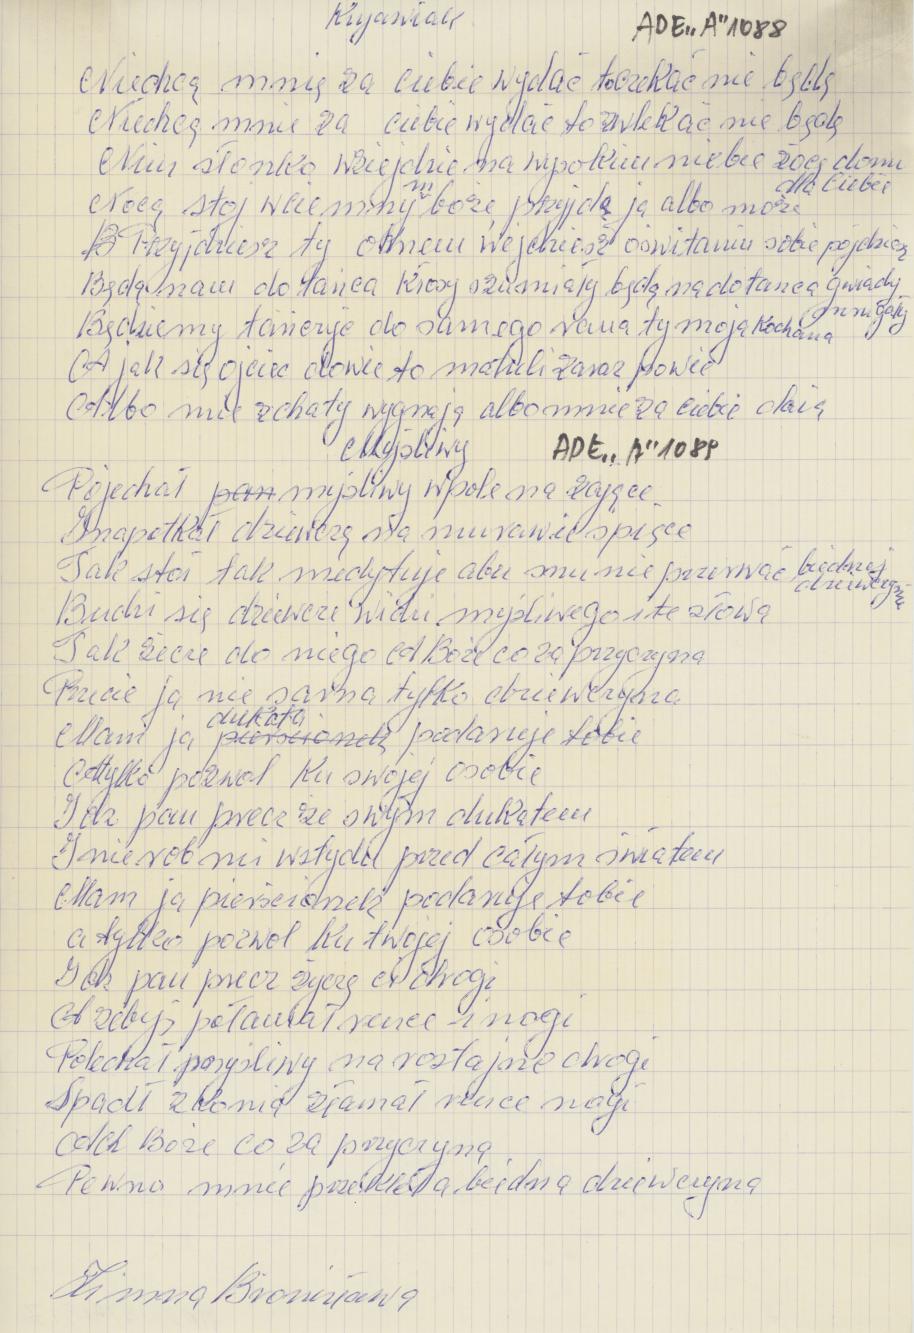 Kujawiak ADE „A" 1088
Niechcą mnię za ciebie wydać toczekać nie będę
Niechcą mnie za ciebie wydać to zwlekać nie będę
Nim słonko wziejdzie na wysokim niebie
dla ciebie
Nocą stoj wcie mnij boże przyjdą ja albo może
Przyjdziesz ty oknem wejdziesz oświtaniu sobie pójdziesz
Będą nam do tańca kłosy szumiały będą nadotańca gwiady
mrugały
Będziemy tańczyć do samego rana ty moja kochana
A jak się ojciec dowie to matuli zaraz powie
Albo mie zchaty wygnają albo mnie za ciebie dają
Myśliwy ADE „A" 1089
Pojechał pan myśliwy wpole na zające
Inapotkał dziewczę na murawie spiące
Tak stoi tak medytuje abu snu nie przerwać biednej
dziewczynie
Budzi się dziewcze widzi myśliwego i te słowa
Tak żecze do niego A Boże co za przyczyna
Przecie ja nie sarna tylko dziewczyna
dukata
Mam ja pierścionek podaruje tobie
Atylko pozwol ku swojej osobie
Idz pan precz ze swym dukatem
Inierob mi wstydu przed całym światem
Mam ja pierścionek podaruje tobie
a tylko pozwol ku twojej osobie
Idz pan precz życzę ci drogi
A zebyś połamał rence i nogi
Polechał myśliwy na rostajne drogi
Spadł zkonia złamał rence nogi
Ach Boże co za przyczyna
Pewno mnie przeklęła biedna dziewczyna
Zimna Bronisława